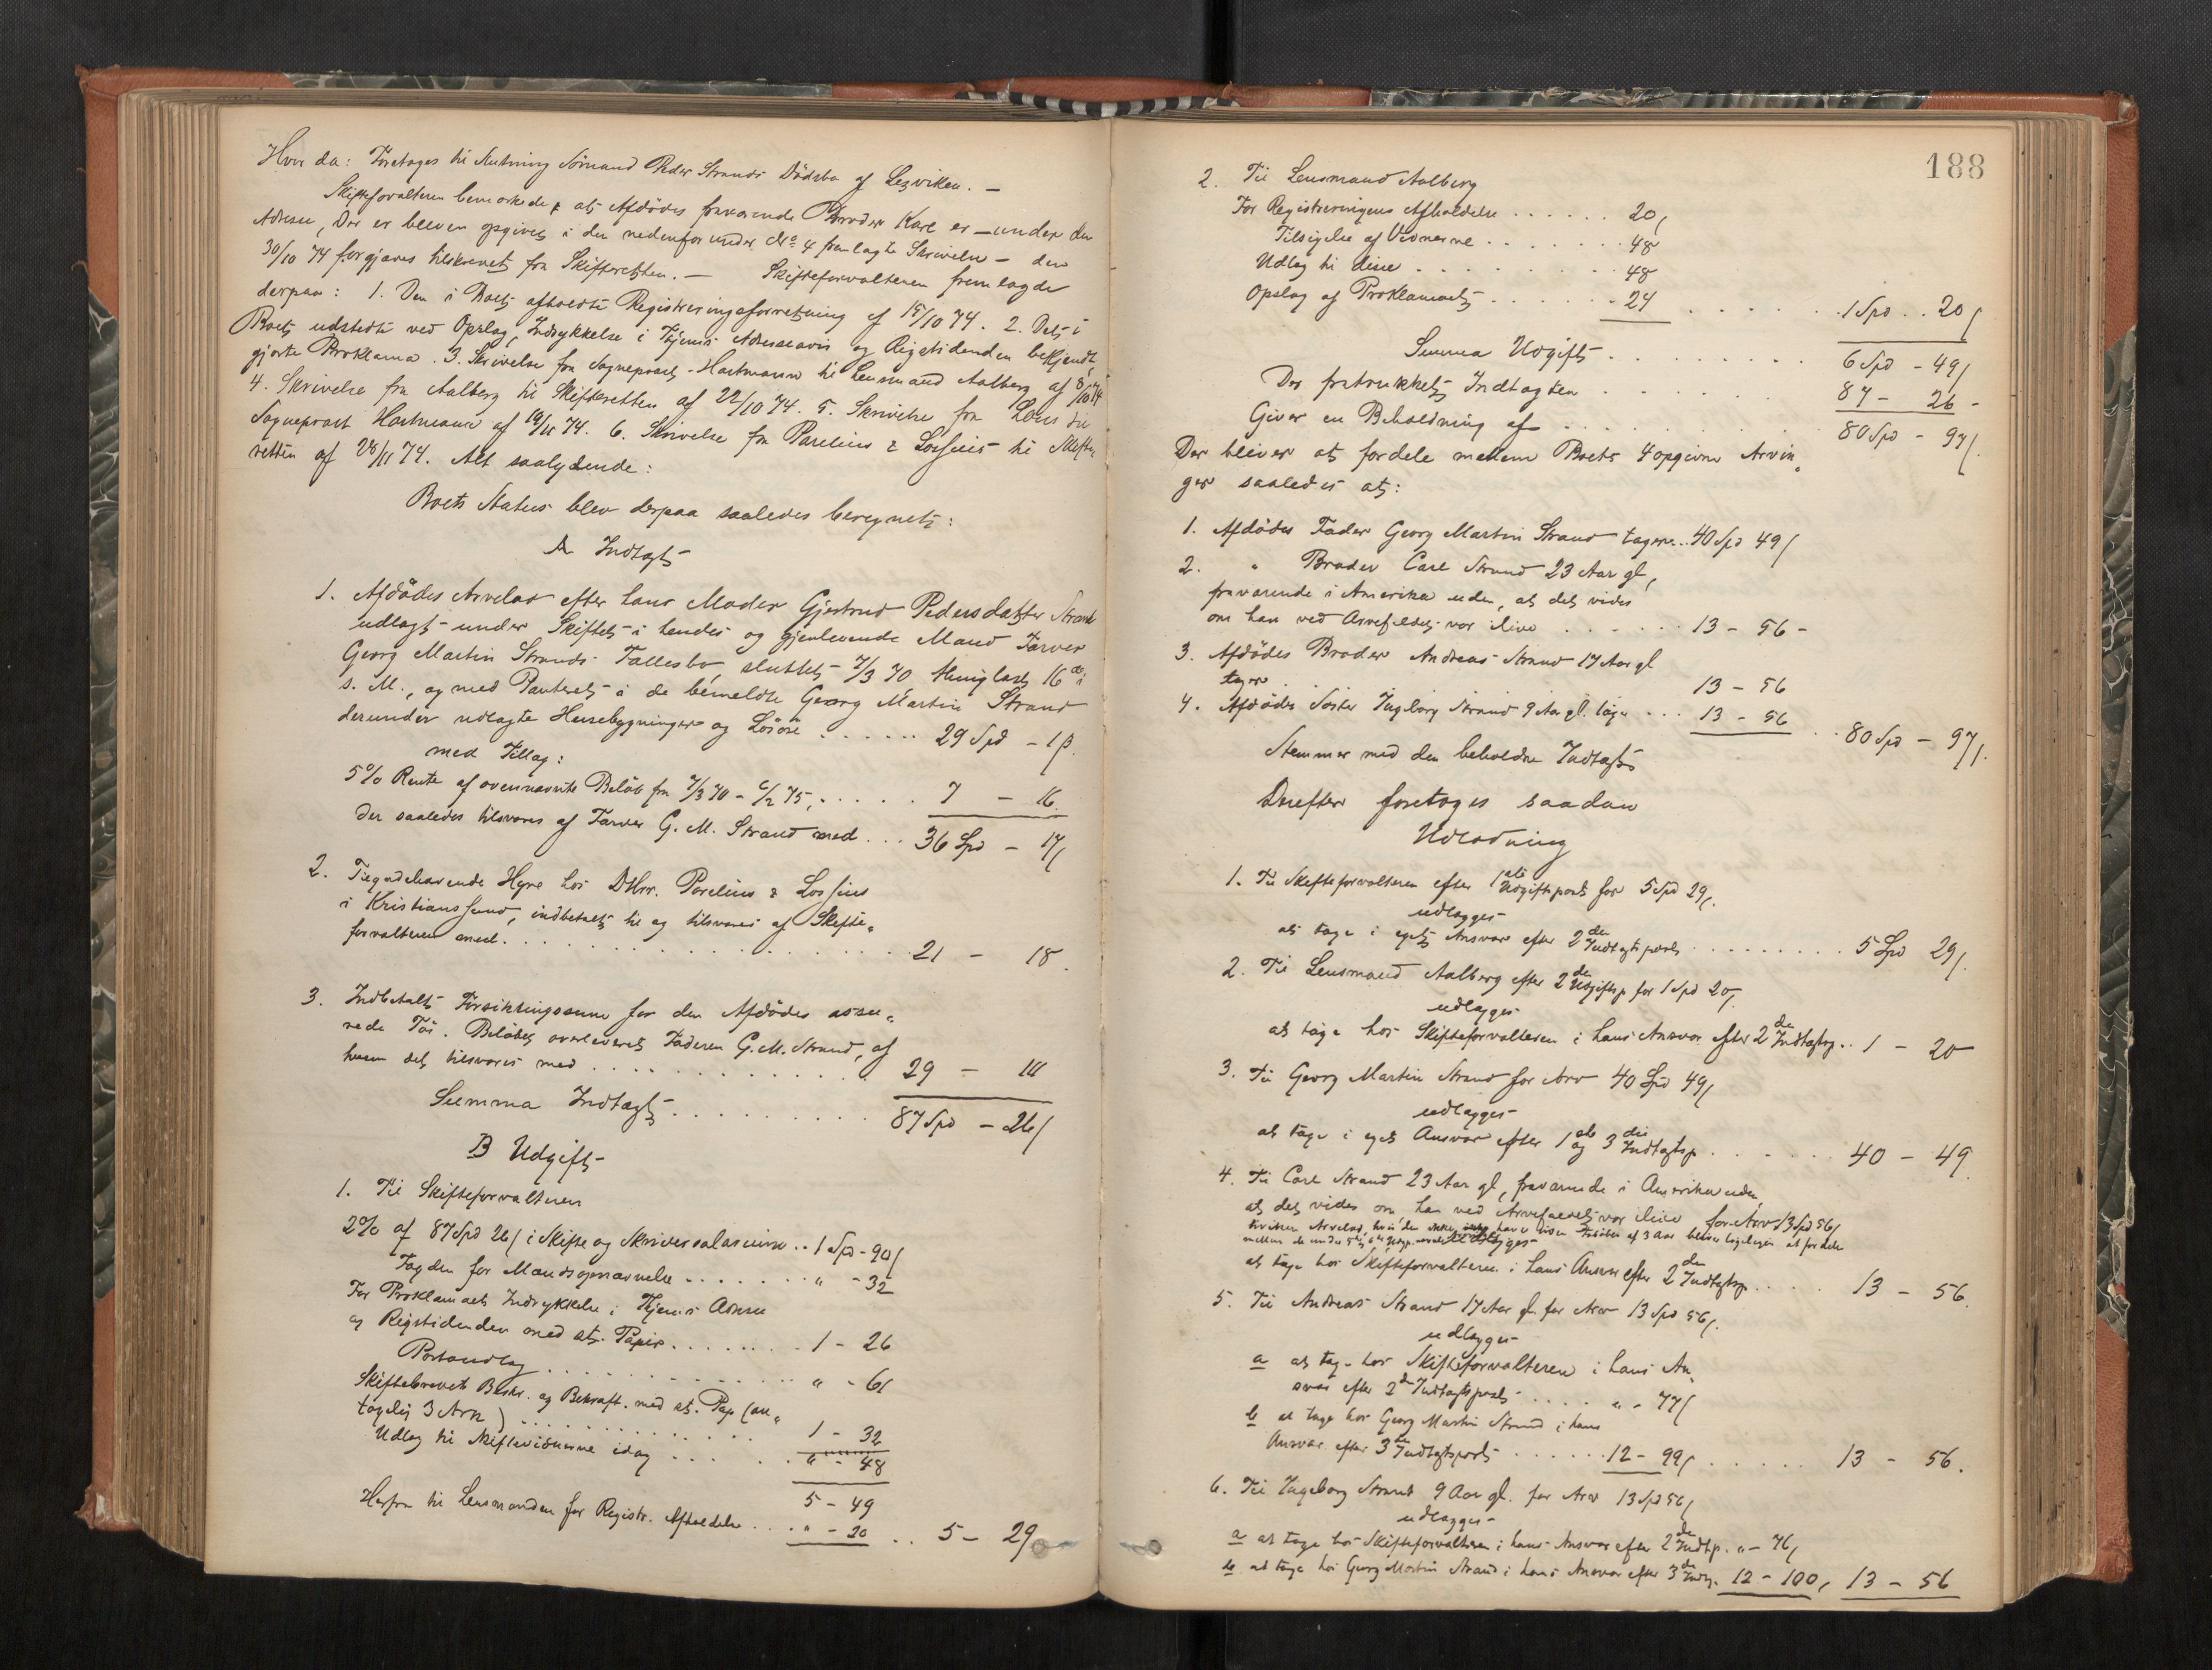 Hvor da: Foretoges til Slutning Sömand Peder Strands Dödsbo af Legviken. —
Skifteforvalteren bemærkede, at Afdödes fraværende Broder Karl er — under den
Adresse, Der er bleven opgivet i den nedenfor under No 4 fremlagte Skrivelse — den
30/10 74 forgjæves tilskrevet fra Skifteretten. — Skifteforvalteren fremlagde
derpaa: 1. Den i Boet afholdte Registreringsforretning af 15/10 74. 2. Det i
Boet udstedte ved Opslag, Indrykkelse i Thjems Adresseavis og Rigstidenden bekjendt
gjorte Proklama. 3. Skrivelse fra Sogneprest Hartmann til Lensmand Aalberg af 8/10 74
4. Skrivelse fra Aalberg til Skifteretten af 22/10 74. 5. Skrivelse fra Lens til
Sogneprest Hartmann af 14/11 74. 6. Skrivelse fra Parelius & Lossius til Skifte
retten af 28/11 74. Alt saalydende:
Boets Status blev derpaa saaledes beregnet:
A Indtægt
1. Afdödes Arvelod efter hans Moder Gjertrud Pedersdatter Strand
udlagt under Skiftet i hendes og gjenlevende Mand Farver
Georg Martin Strands Fællesbo, sluttet 7/3 70 thinglæst 16de
s. M., og med Panteret i de bemeldte Georg Martin Strand
derunder udlagte Husebygninger og Lösöre ...... 29 Spd - 1 β.
med Tillæg:
5% Rente af ovennævnte Belöb fra 7/3 70 - 6/2 75, ..... 7 - 16
der saaledes tilsvares af Farver G. M. Strand med ... 36 Spd - 17 β
2. Tilgodehavende Hyre hos DHrr. Parelius & Lossius
i Kristianssund, indbetalt til og tilsvares af Skifte„
forvalteren med ............ 21 - 18.
3. Indbetalt Forsikringssum for den Afdödes assu„
rede Töi. Belöbet overleveret Faderen G. M. Strand, af
hvem det tilsvares med ............ 29 -
Summa Indtægt ......... 87 Spd - 26 β
B Udgift
1. Til Skifteforvalteren
2% af 87 Spd 26 β i Skifte og Skriversalarium .. 1 Spd - 90 β
Fogden for Mandsopnævnelse ....... " - 32
For Proklamaets Indrykkelse i Thjems Adresse
og Rigstidenden med st. Papir ....... 1 - 26
Portoudlæg ............ " - 61
Skiftebrevets Beskr. og Bekræft. med st. Pap (an„
tagelig 3 Ark) ............ 1 - 32
Udlæg til Skiftevidnerne idag ..... " - 48
5 - 49
Herfra til Lensmanden for Registr. Afholdelse .... " - 20 .. 5 - 29
188
2. Til Lensmand Aalberg
For Registreringens Afholdelse ...... 20 β
Tilsigelse af Vidnerne ....... 48
Udlæg til disse ........ 48
Opslag af Proklamaet ...... 24 ...... 1 Spd .. 20 β
Summa Udgift ......... 6 Spd - 49 β
Der fratrukket Indtægten ...... 87 - 26 -
Giver en Beholdning af ......... 80 Spd - 97 β.
Der bliver at fordele mellem Boets 4 opgivne Arvin„
ger saaledes at:
1. Afdödes Fader Georg Martin Strand tager .. 40 Spd 49 β
2. " Broder Carl Strand 23 Aar gl,
fraværende i Amerika uden, at det vides
om han ved Arvefaldet var ilive ...... 13 - 56 -
3. Afdödes Broder Andreas Strand 17 Aar gl
tager ... 13 - 56
4. Afdödes Söster Ingeborg Strand 9 Aar gl. tager ... 13 - 56 .. 80 Spd - 97 β.
Stemmer med den beholdne Indtægt
Derefter foretoges saadan
Udlodning
1. Til Skifteforvalteren efter 1ste Udgiftspost for 5 Spd 29 β.
udlægges
at tage i eget Ansvar efter 2den Indtægtspost ......... 5 Spd 29 β.
2. Til Lensmand Aalberg efter 2den Udgiftsp for 1 Spd 20 β.
udlægges
at tage hos Skifteforvalteren i hans Ansvar efter 2den Indtægtsp .. 1 - 20
3. Til Georg Martin Strand for Arv 40 Spd 49 β
udlægges
at tage i eget Ansvar efter 1ste og 3die Indtægtsp ...... 40 - 49.
4. Til Carl Strand 23 Aar gl, fraværende i Amerika uden,
at det vides om han ved Arvefaldet var ilive for Arv 13 Spd 56 β
hvilken Arvelod, hvis den ikke hæves inden Udlöbet af 3 Aar bliver ligeligen at fordele
mellem de under 5te og 6te
at tage hos Skifteforvalteren i hans Ansvar efter 2den Indtægtsp .... 13 - 56.
5. Til Andreas Strand 17 Aar gl. for Arv 13 Spd 56 β.
udlægges
a at tage hos Skifteforvalteren i hans An„
svar efter 2den Indtægtspost .... " - 77 β
b at tage hos Georg Martin Strand i hans
Ansvar efter 3die Indtægtspost ...... 12 - 99 β ..... 13 - 56.
6. Til Ingeborg Strand 9 Aar gl. for Arv 13 Spd 56 β
udlægges
a at tage hos Skifteforvalteren i hans Ansvar efter 2den Indtp. " - 76 β
b at tage hos Georg Martin Strand i hans Ansvar efter 3die Indtp. 12 - 100, 13 - 56